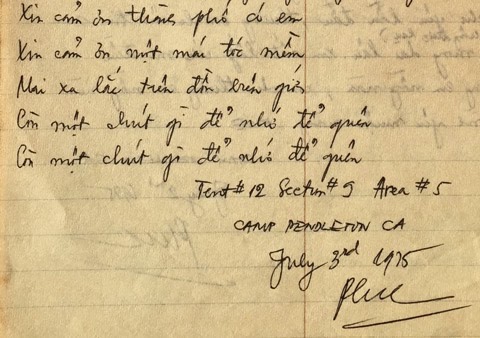 Xin cảm ơn thành phố có em
Xin cảm ơn một mái tóc mềm
Mai xa lắc trên đồn biên giới
Còn một chút gì để nhớ để quên
Còn một chút gì để nhớ để quên
Tent #12 Section #9 Area #5
CAMP PENDLETON CA
July 3rd 1975